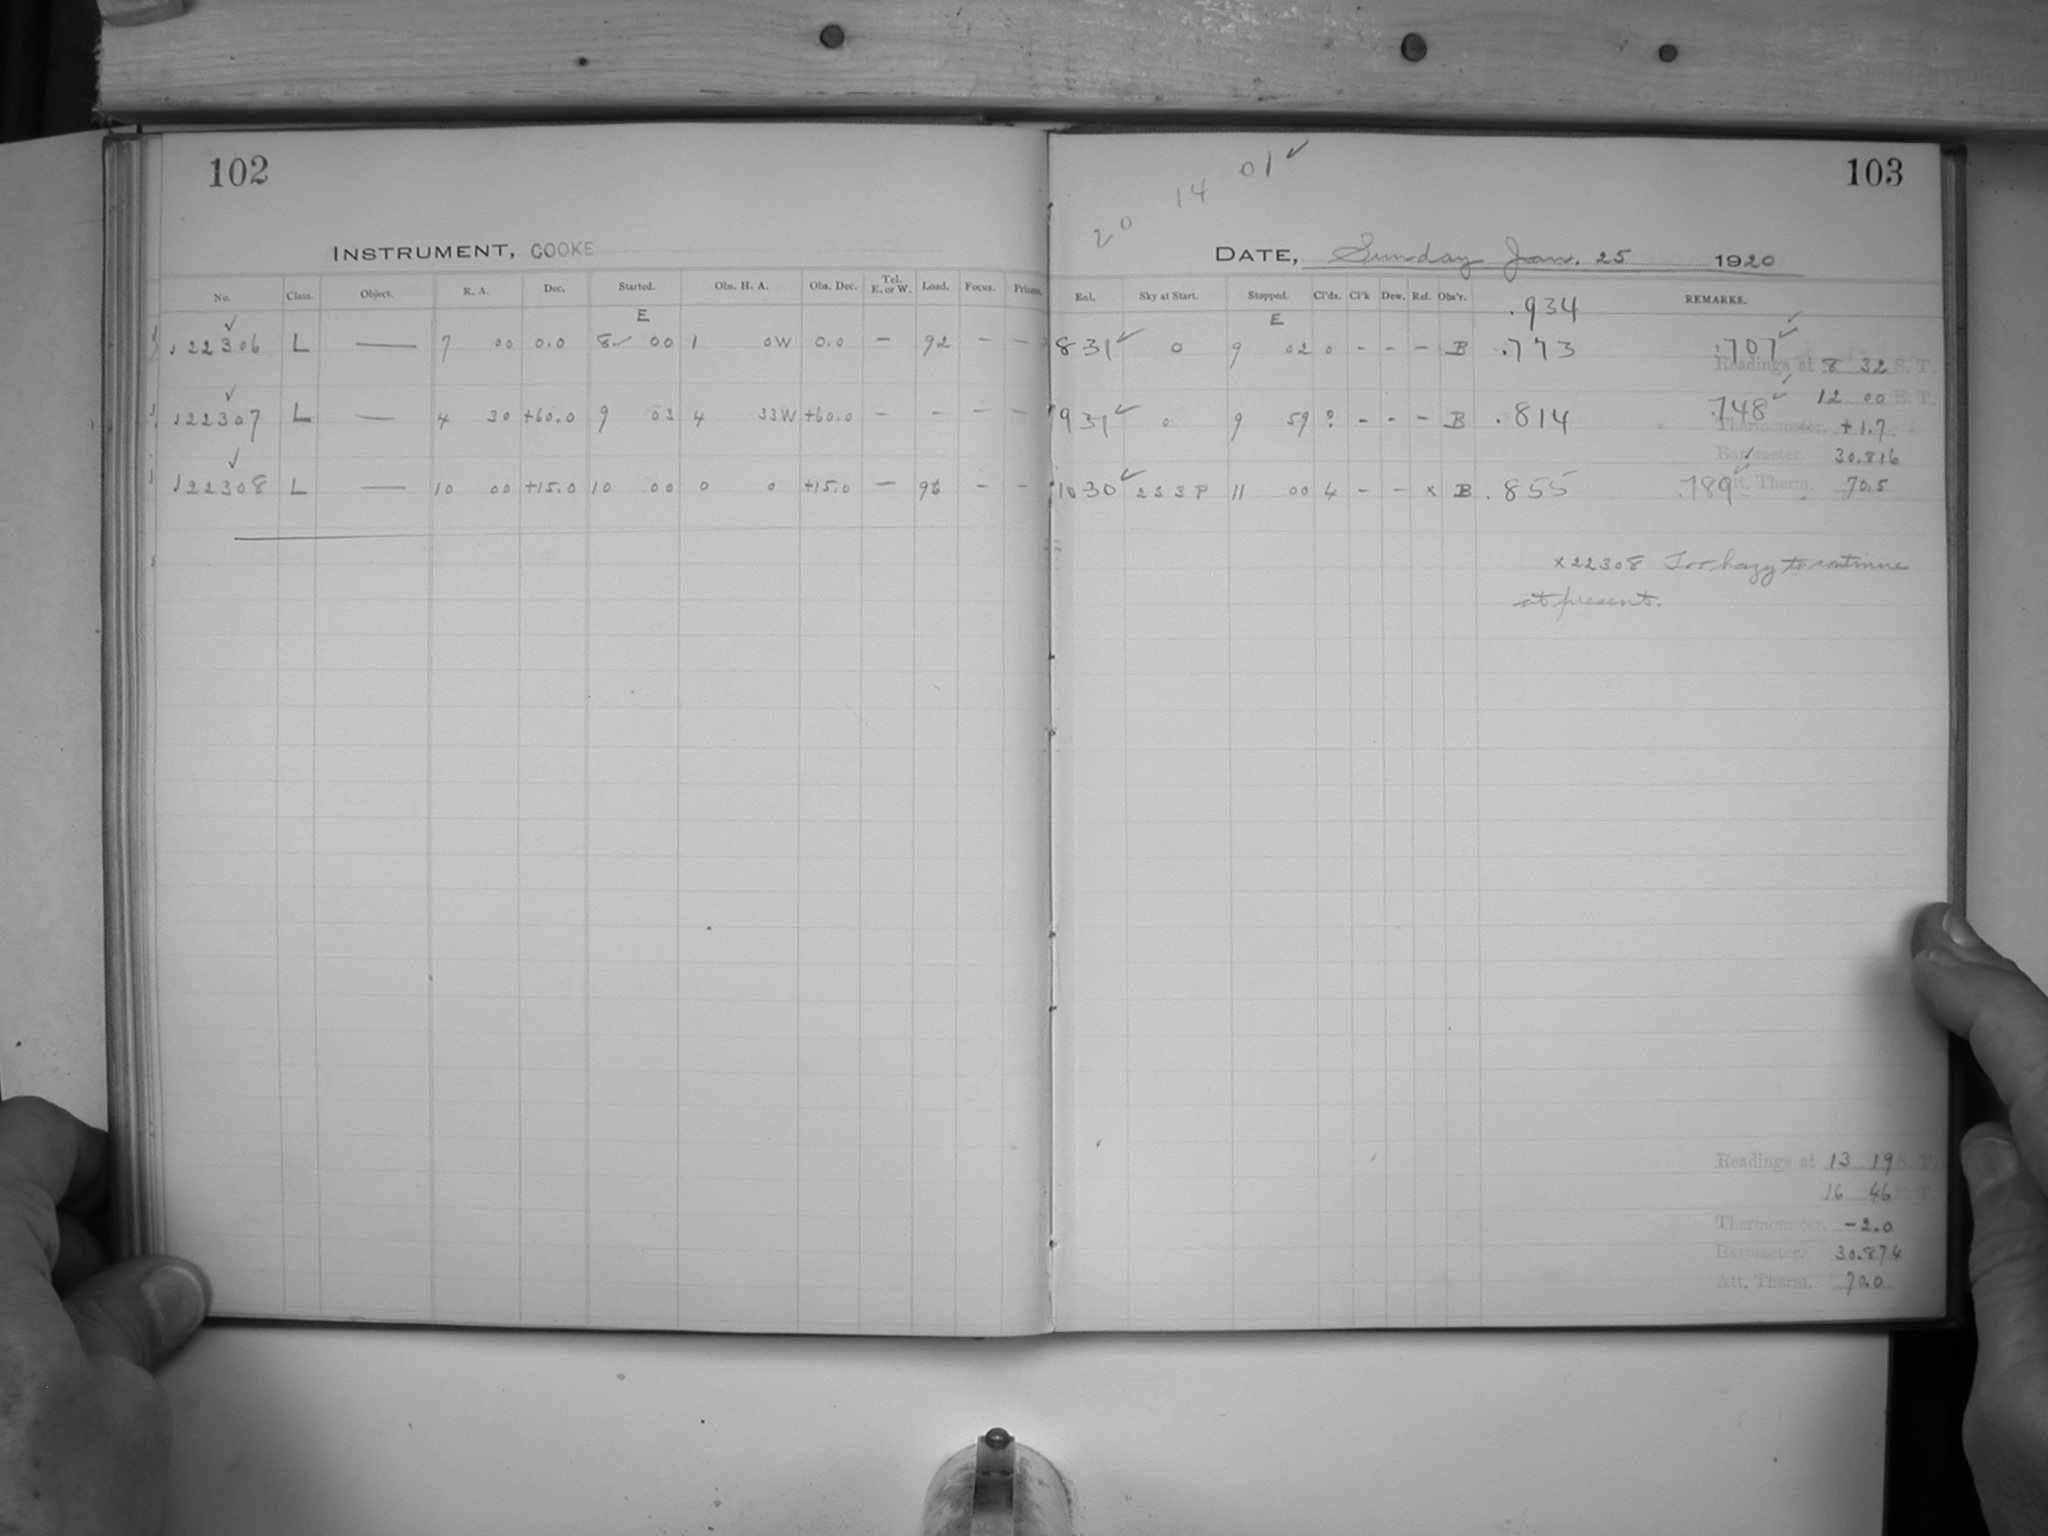 102
INSTRUMENT, COOKE
No. Class. Object. R. A. Dec. Started. Obs. H. A. Obs. Dec. Tel. E. or W. Load. Focus. Prisms.
E
✓
122306 L — 7 00 0.0 8 00 1 0W 0.0 — 92 — —
✓
122307 L — 4 30 +60.0 9 03 4 33W +60.0 — — — —
✓
122308 L — 10 00 +15.0 10 00 0 0 +15.0 — 96 — —
103
01 ✓
14
20
DATE, Sunday Jan. 25 1920
Eol. Sky at Start. Stopped. Cl'ds. Cl'k Dew. Ref. Obs'r. REMARKS.
E .934
831 ✓ 0 9 02 0 - - - B .773 .707 ✓
Readings at 8 32 S. T.
12 00 E. T.
931 ✓ 0 9 59 ? - - - B .814 .748 ✓
Thermometer. +1.7
Barometer. 30.816
1030 ✓ 2 3 3 P 11 00 4 - - x B .855 .789 ✓
Att. Therm. 70.5
x22308 Too hazy to continue
at present.
Readings at 13 19 S. T.
16 46 E. T.
Thermometer. -2.0
Barometer. 30.874
Att. Therm. 70.0